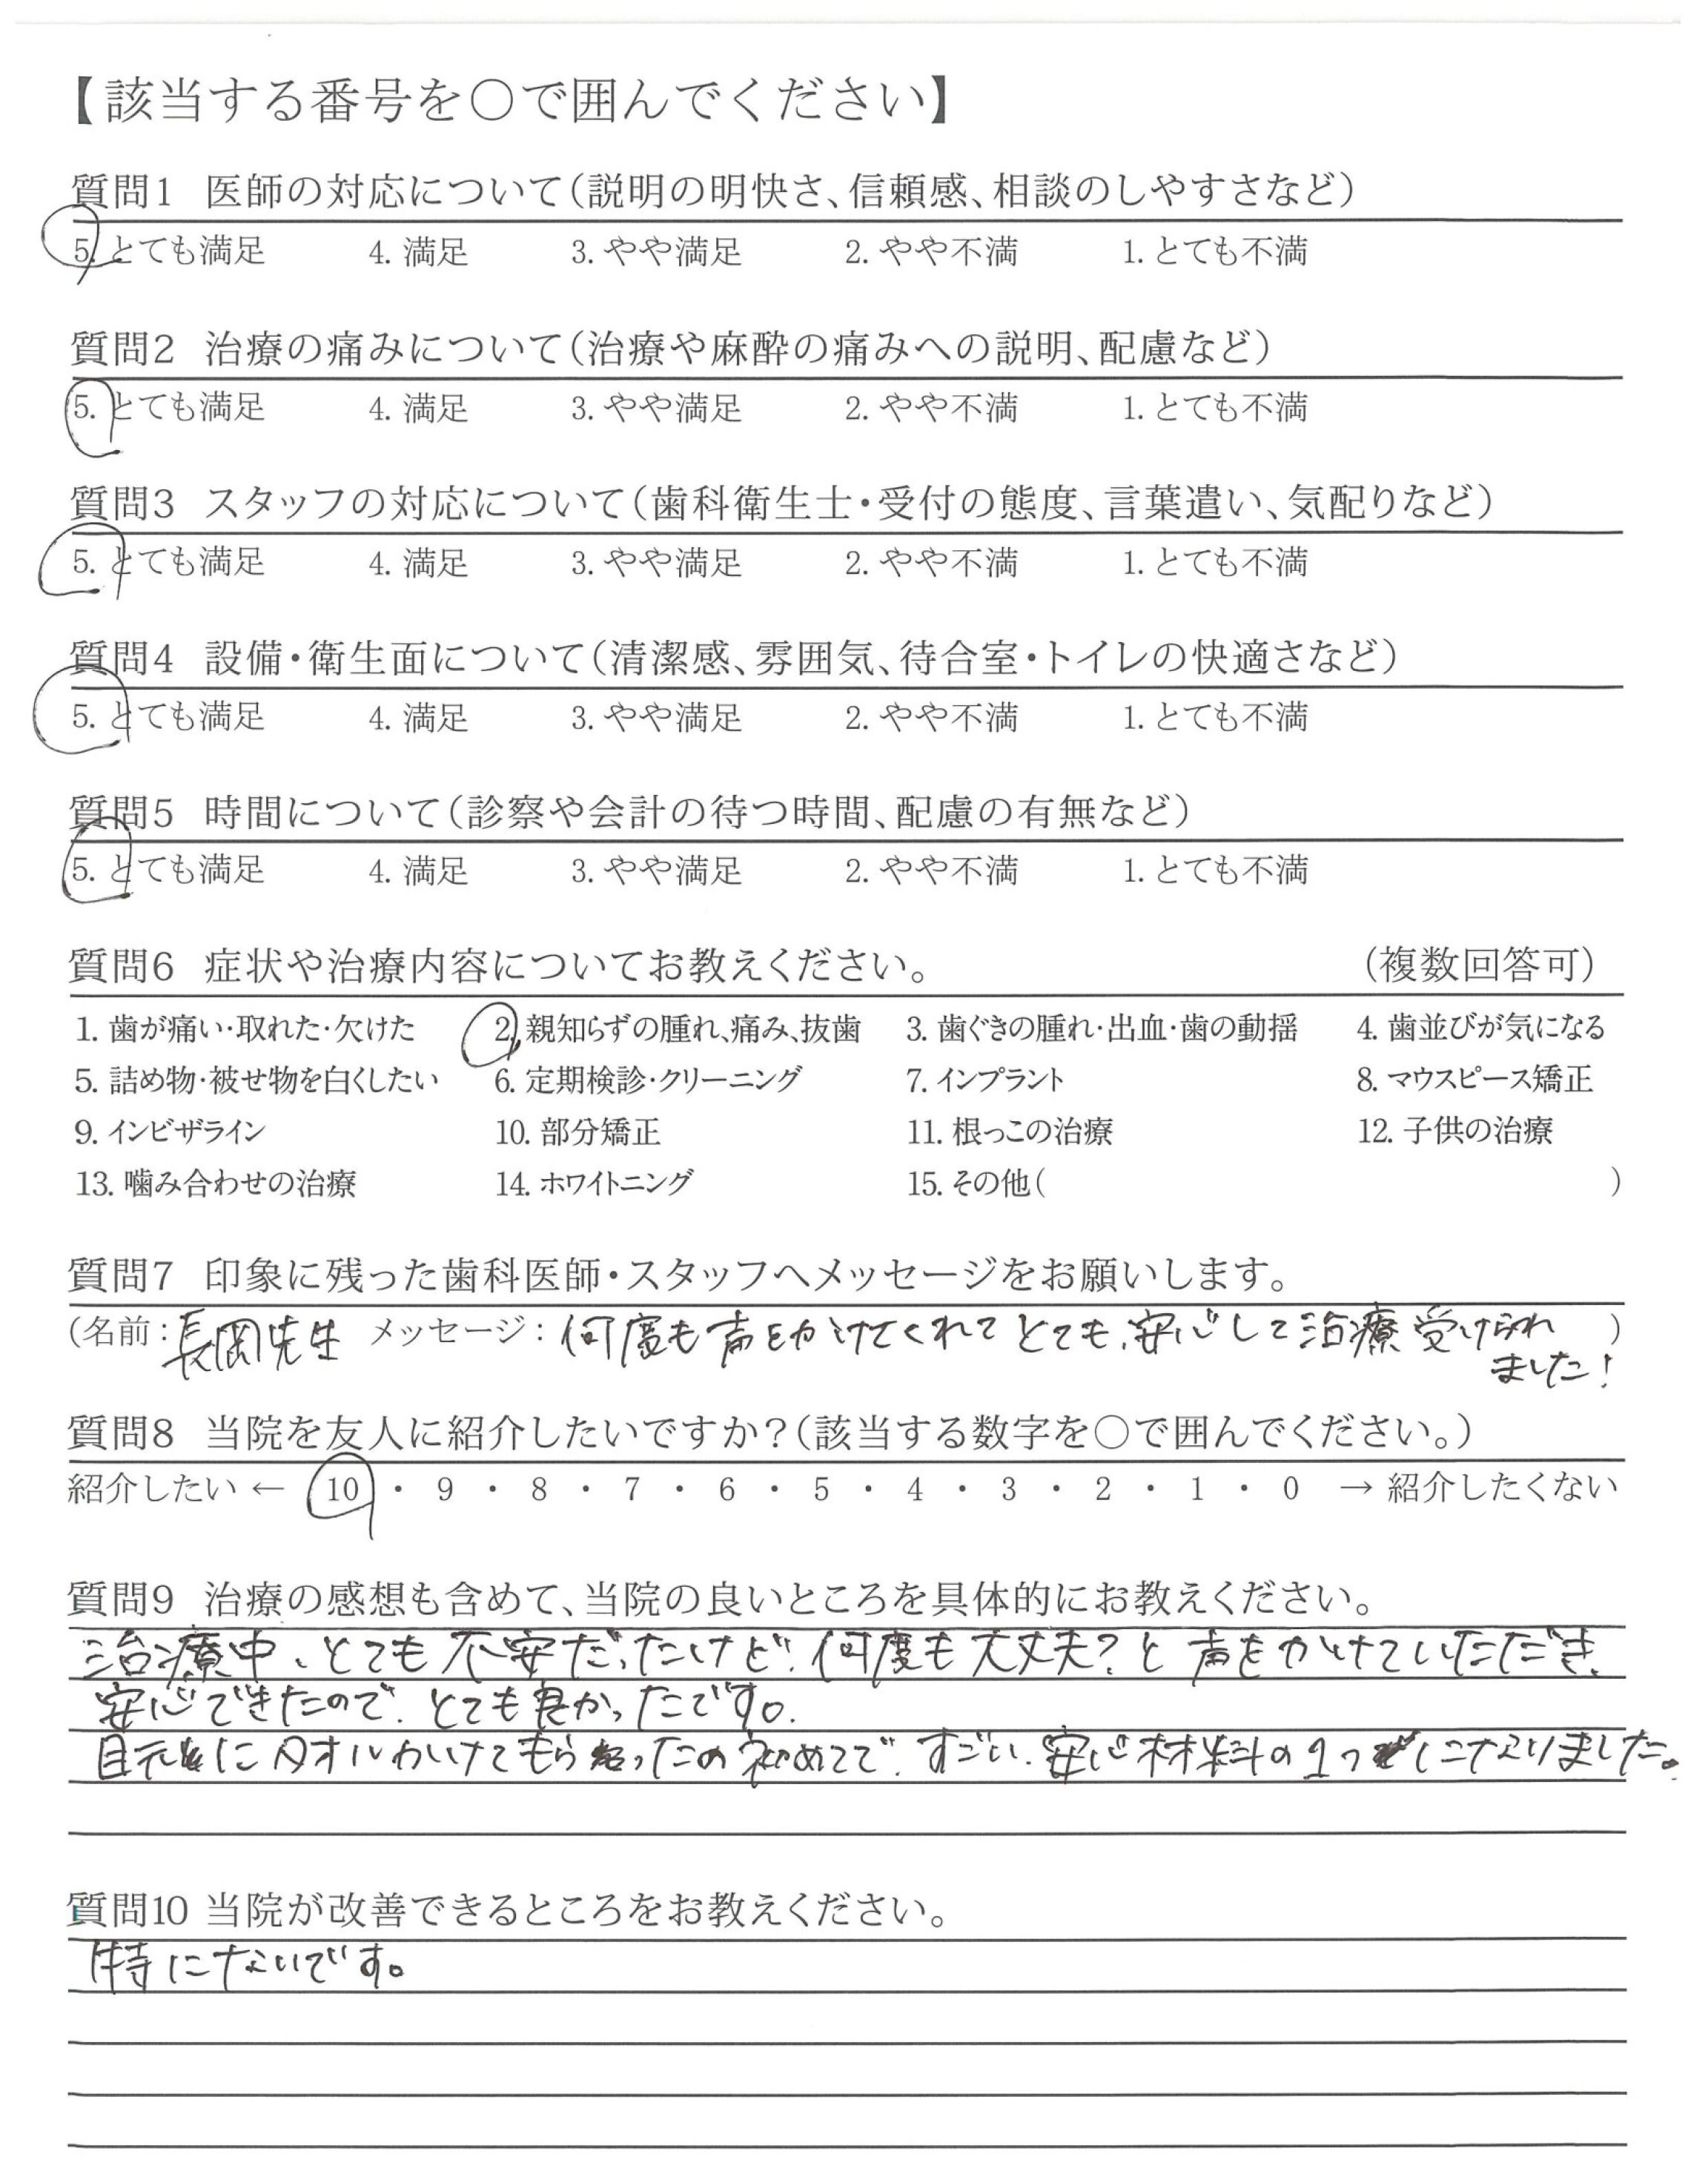 【該当する番号を○で囲んでください】
質問1 医師の対応について（説明の明快さ、信頼感、相談のしやすさなど）
5. とても満足 4. 満足 3. やや満足 2. やや不満 1. とても不満
質問2 治療の痛みについて（治療や麻酔の痛みへの説明、配慮など）
5. とても満足 4. 満足 3. やや満足 2. やや不満 1. とても不満
質問3 スタッフの対応について（歯科衛生士・受付の態度、言葉遣い、気配りなど）
5. とても満足 4. 満足 3. やや満足 2. やや不満 1. とても不満
質問4 設備・衛生面について（清潔感、雰囲気、待合室・トイレの快適さなど）
5. とても満足 4. 満足 3. やや満足 2. やや不満 1. とても不満
質問5 時間について（診察や会計の待つ時間、配慮の有無など）
5. とても満足 4. 満足 3. やや満足 2. やや不満 1. とても不満
質問6 症状や治療内容についてお教えください。 （複数回答可）
1. 歯が痛い・取れた・欠けた 2. 親知らずの腫れ、痛み、抜歯 3. 歯ぐきの腫れ・出血・歯の動揺 4. 歯並びが気になる
5. 詰め物・被せ物を白くしたい 6. 定期検診・クリーニング 7. インプラント 8. マウスピース矯正
9. インビザライン 10. 部分矯正 11. 根っこの治療 12. 子供の治療
13. 噛み合わせの治療 14. ホワイトニング 15. その他（ ）
質問7 印象に残った歯科医師・スタッフへメッセージをお願いします。
（名前：長岡先生 メッセージ：何度も声をかけてくれてとても、安心して治療受けられ ）
ました！
質問8 当院を友人に紹介したいですか？（該当する数字を○で囲んでください。）
紹介したい ← 10 ・ 9 ・ 8 ・ 7 ・ 6 ・ 5 ・ 4 ・ 3 ・ 2 ・ 1 ・ 0 → 紹介したくない
質問9 治療の感想も含めて、当院の良いところを具体的にお教えください。
治療中、とても不安だったけど、何度も大丈夫？と声をかけていただき、
安心できたので、とても良かったです。
目元にタオルかけてもらったの初めてで、すごい、安心材料の1つになりました。
質問10 当院が改善できるところをお教えください。
特にないです。